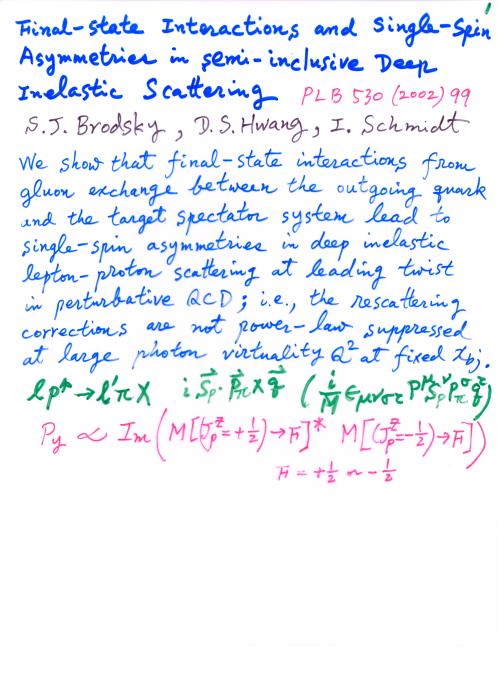 1
Final-state Interactions and Single-Spin
Asymmetries in semi-inclusive Deep
Inelastic Scattering PLB 530 (2002) 99
S.J. Brodsky, D.S. Hwang, I. Schmidt
We show that final-state interactions from
gluon exchange between the outgoing quark
and the target spectator system lead to
single-spin asymmetries in deep inelastic
lepton-proton scattering at leading twist
in perturbative QCD; i.e., the rescattering
corrections are not power-law suppressed
at large photon virtuality Q² at fixed x_bj.
l p^↑ → l' π X i S⃗_p · P⃗_π × q⃗ (i/M ε_μνστ P^μ S_p^ν P_π^σ q^τ)
P_y ∝ Im(M[J_p^z=+½)→F]* M[(J_p^z=-½)→F])
F = +½ or -½